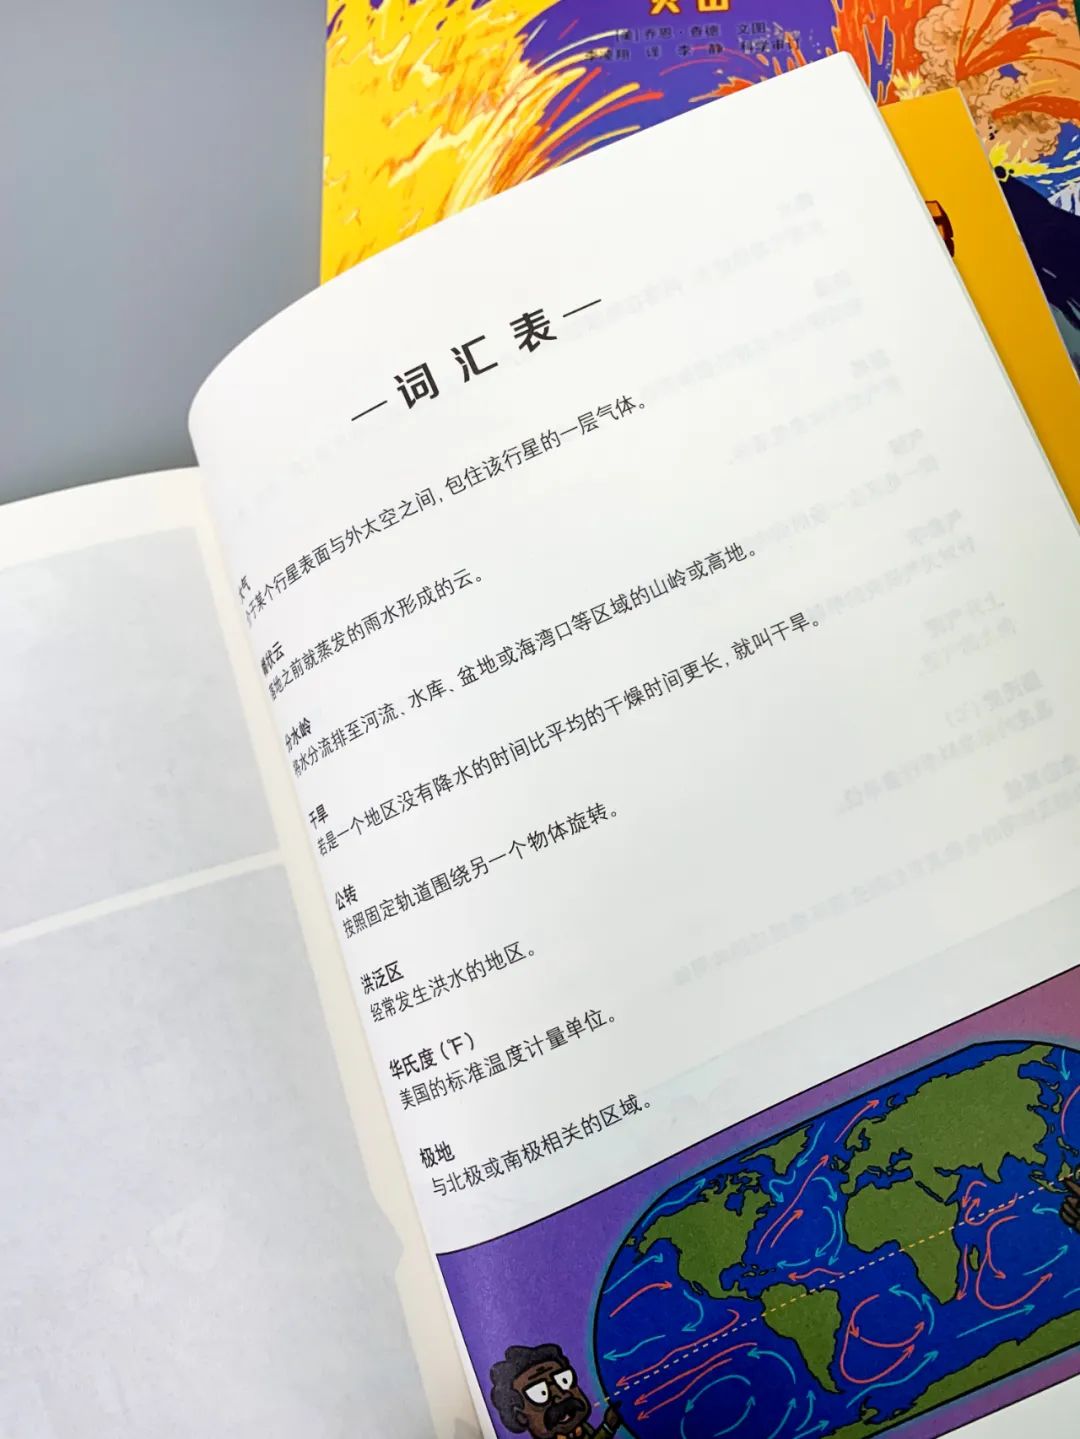 火山
[美] 乔恩·查德 文图
李凌翔 译 李 静 科学审订
词汇表
大气
介于某个行星表面与外太空之间，包住该行星的一层气体。
潜伏云
落地之前就蒸发的雨水形成的云。
分水岭
将水分流排至河流、水库、盆地或海湾口等区域的山岭或高地。
干旱
若是一个地区没有降水的时间比平均的干燥时间更长，就叫干旱。
公转
按照固定轨道围绕另一个物体旋转。
洪泛区
经常发生洪水的地区。
华氏度（℉）
美国的标准温度计量单位。
极地
与北极或南极相关的区域。